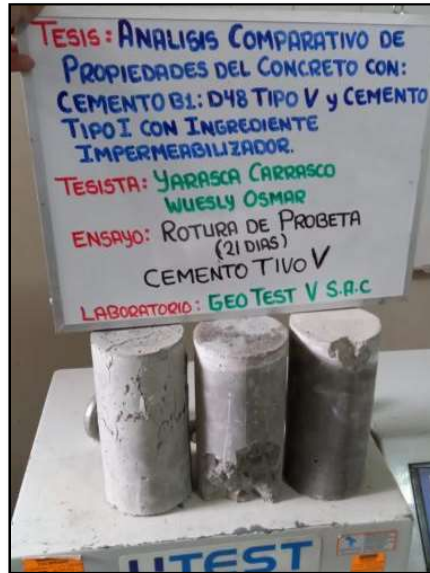 TESIS: ANALISIS COMPARATIVO DE
PROPIEDADES DEL CONCRETO CON:
CEMENTO B1: D48 TIPO V y CEMENTO
TIPO I CON INGREDIENTE
IMPERMEABILIZADOR.
TESISTA: YARASCA CARRASCO
WUESLY OSMAR
ENSAYO: ROTURA DE PROBETA
(21 DIAS)
CEMENTO TIVO V
LABORATORIO: GEO TEST V S.A.C
UTEST